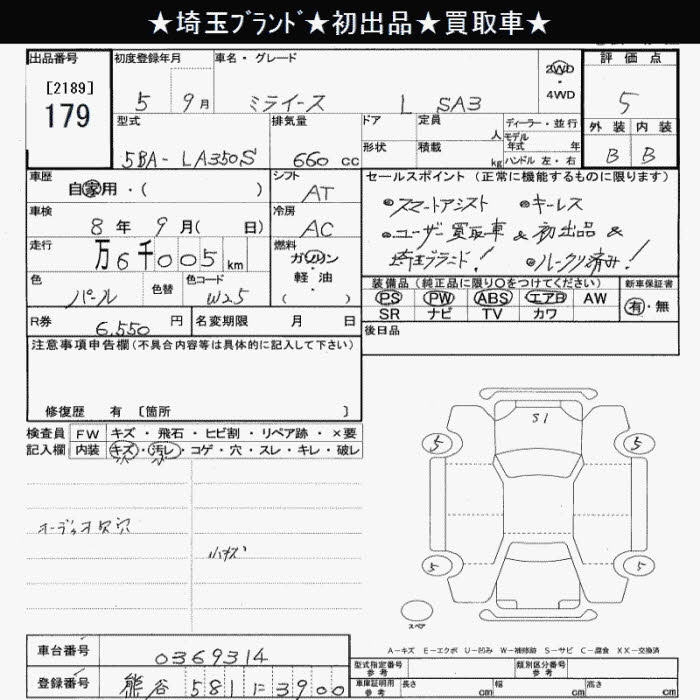 ★埼玉ﾌﾞﾗﾝﾄﾞ★初出品★買取車★
出品番号 初度登録年月 車名・グレード 2WD 評価点
[2189] 5 9月 ミライース L SA3 ・4WD 5
179 型式 排気量 ドア 定員 人 ディーラー・並行 外装 内装
5BA-LA350S 660cc 形状 積載 kg モデル年式 年 ハンドル 左・右 B B
車歴 自家用・( ) シフト AT セールスポイント(正常に機能するものに限ります)
車検 8年9月( 日) 冷房 AC ●スマートアシスト ●キーレス
走行 万6千005km 燃料 ガソリン・軽油・( ) ●ユーザー買取車&初出品&
埼玉ブランド! ●ルークリ済み!
色 パール 色替 色コード W25 装備品(純正品に限り○をつけてください) 新車保証書
PS PW ABS エアB AW 有・無
SR ナビ TV カワ
R券 6,550円 名変期限 月 日 後日品
注意事項申告欄(不具合内容等は具体的に記入して下さい)
修復歴 有 [箇所 ]
検査員 FW キズ・飛石・ヒビ割・リペア跡・×要
記入欄 内装 キズ・汚レ・コゲ・穴・スレ・キレ・破レ
小 小
オーディオ欠穴
小キズ
S1
5 5
5 5
スペア
A-キズ E-エクボ U-凹み W-補修跡 S-サビ C-腐食 XX-交換済
車台番号 0369314 型式指定番号 参考 類別区分番号 参考
登録番号 熊谷 581 に 3900 車庫証明用 参考 長さ cm 幅 cm 高さ cm